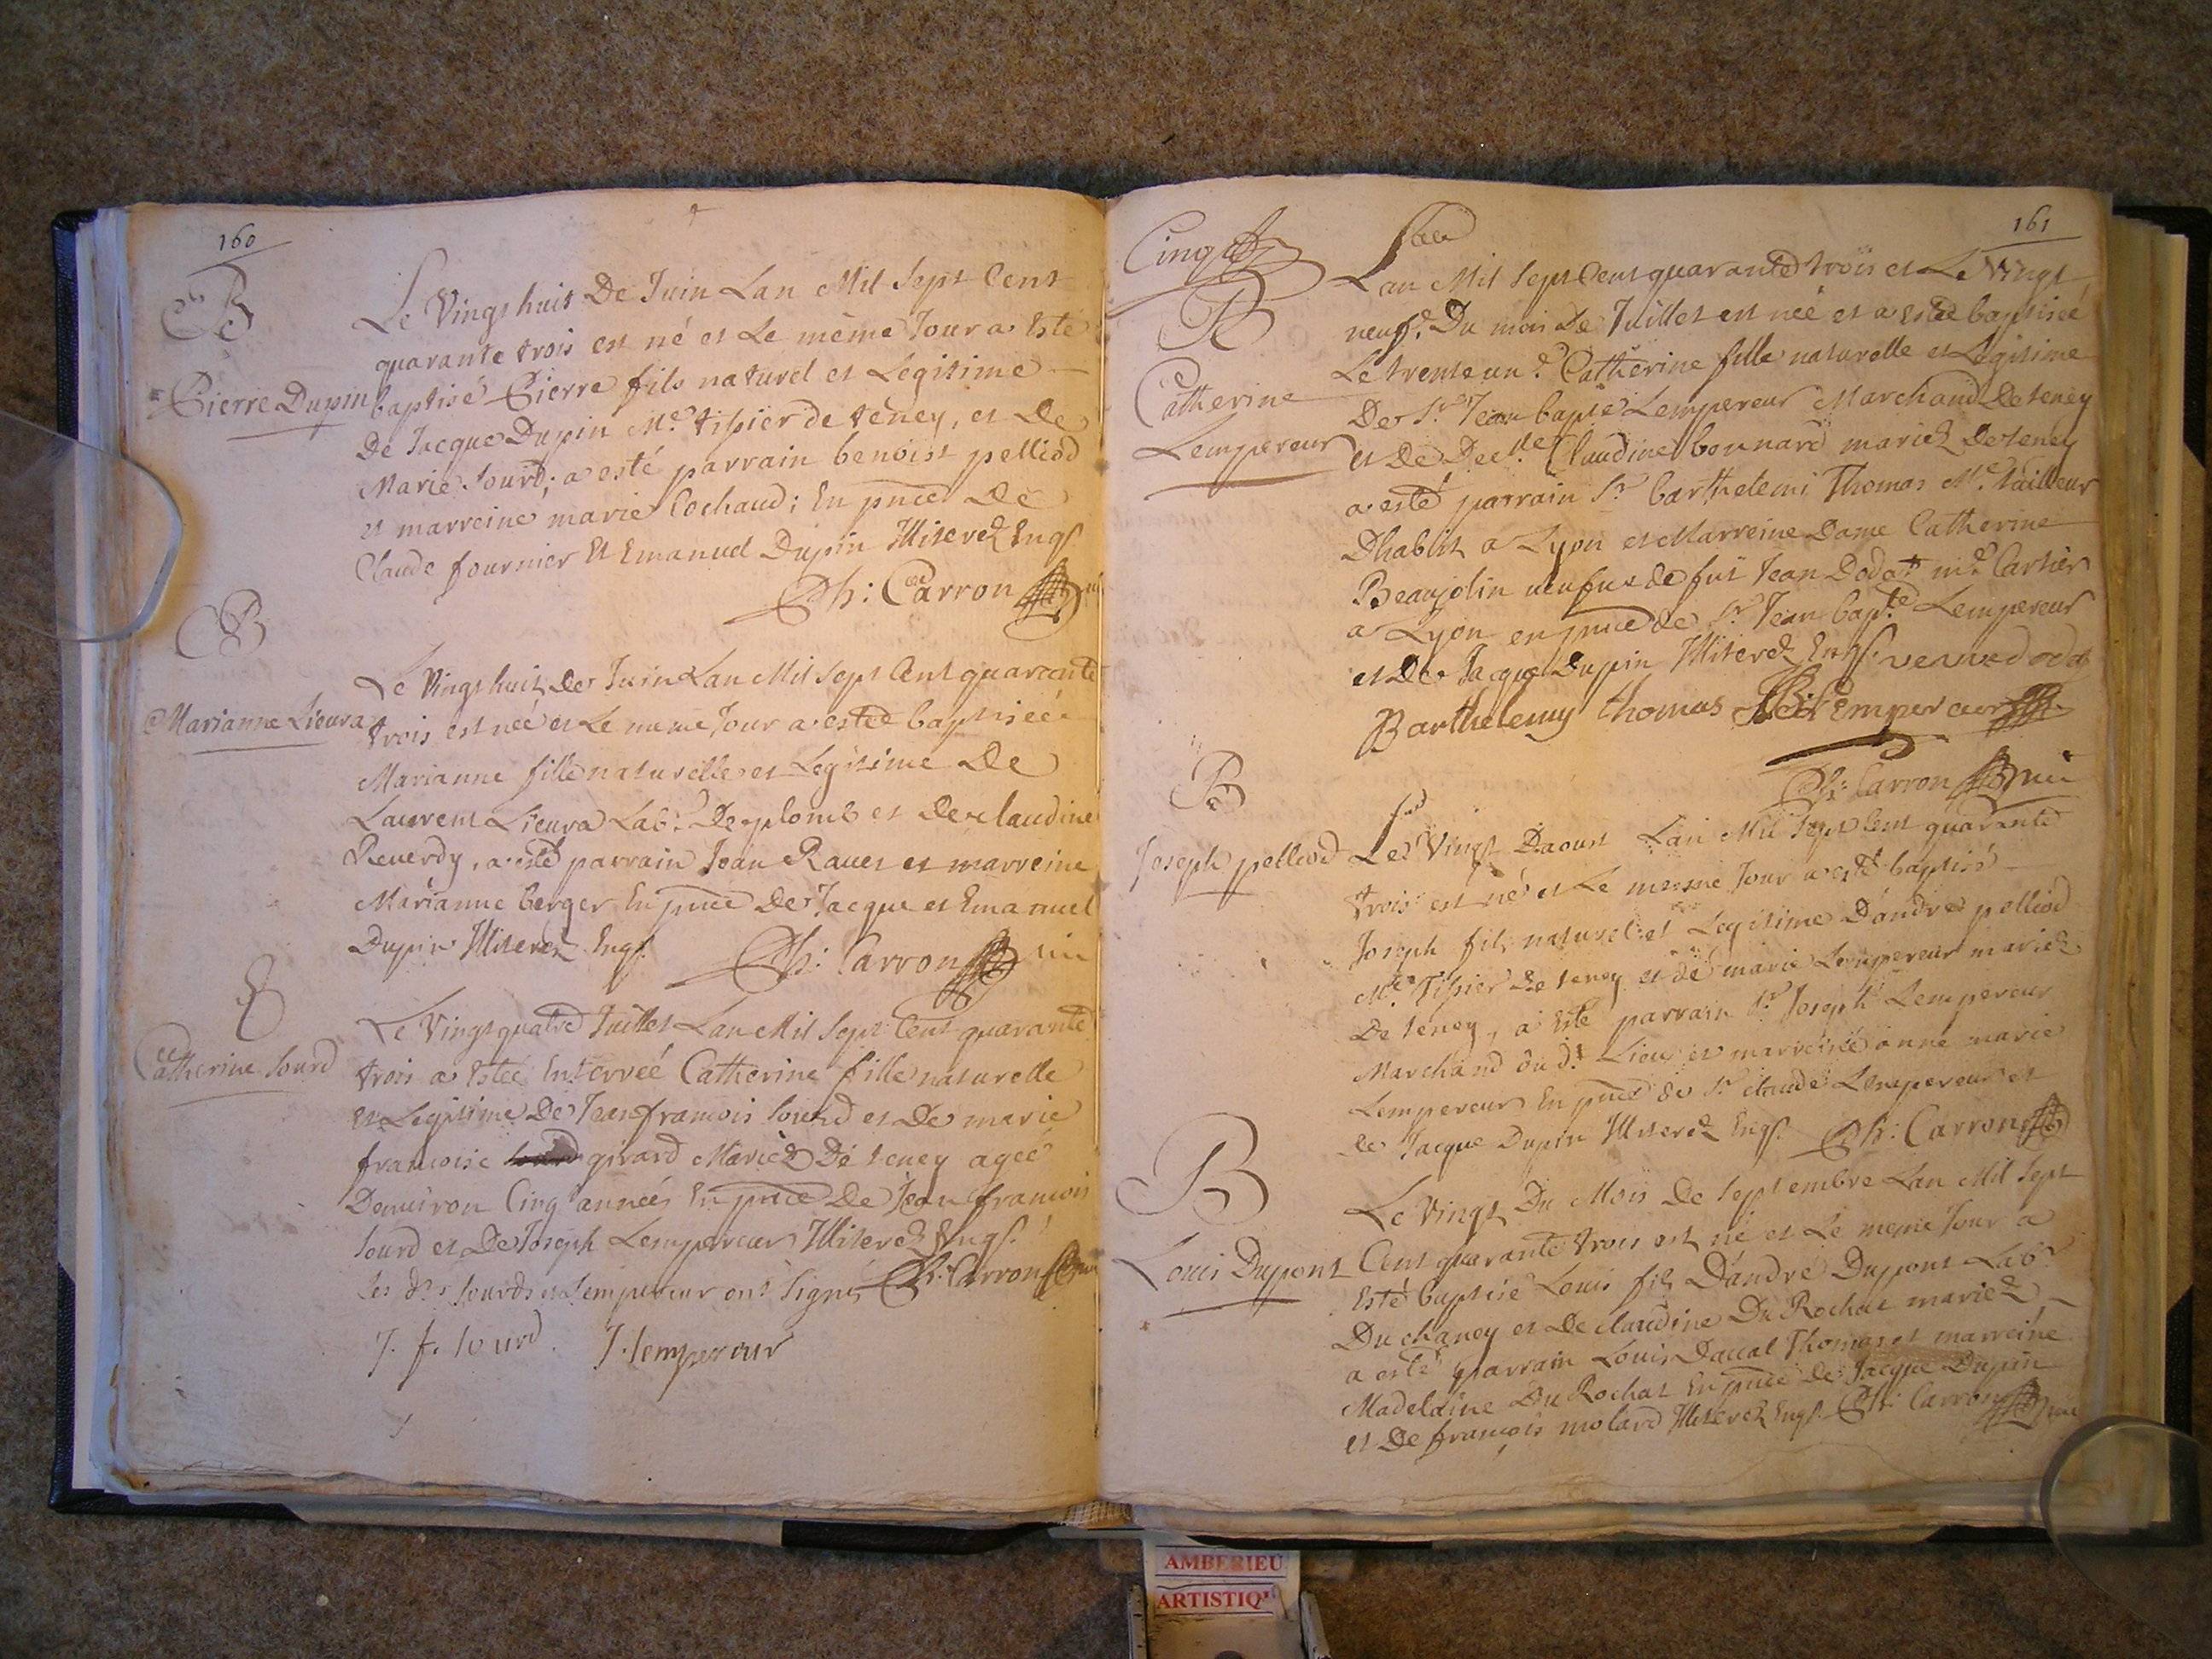 160
B
Pierre Dupin
Le Vingt huit De Juin Lan Mil Sept Cent
quarante trois est né et Le même Jour a Esté
baptisé Pierre fils naturel et Légitime
De Jacque Dupin Me. tissier de teney, et De
Marie Sourd; a esté parrain benoist pelliod
et marreine marie Cochaud; En pnce De
Claude fournier Et Emanuel Dupin Illiterez Engs
Ph: Carron
B
Marianne Lieura
Le Vingt huit De Juin Lan Mil Sept Cent quarante
trois est née et Le meme Jour a estée baptisée
Marianne fille naturelle et Legitime De
Laurent Lieura Labr. De plomb et De claudine
Reuerdy, a esté parrain Jean Rauet et marreine
Marianne berger En pnce De Jacque et Emanuel
Dupin Illiterez Engs.
Ph: Carron
Catherine Sourd
Le Vingt quatre Juillet Lan Mil Sept Cent quarante
trois a Estée Enterrée Catherine fille naturelle
et Legitime De Jean francois Sourd et De marie
francoise girard Mariez De teney agée
Denuiron Cinq années En pnce De Jean francois
Sourd et De Joseph Lempereur Illiterez Engs.
les drs Sourd et Lempereur ont Signé Ph: Carron
J. f. sourd. J. lempereur
161
Cinq
B
Catherine
Lempereur
Lan Mil Sept Cent quarante trois et Le Vingt
neufe. Du mois De Juillet est née et a estée baptisée
Le trente un e. Catherine fille naturelle et Legitime
De Sr. Jean baptte Lempereur Marchand De teney
et De Delle. Claudine bonnard mariez De teney
a esté parrain Sr. barthelemi Thomas Me. tailleur
Dhabits a Lyon et Marreine Dame Catherine
Beaujolin ueufue de fut Jean Dodat md. Cartier
a Lyon en pnce de Sr. Jean bapte. Lempereur
et De Jacque Dupin Illiterez Engs. veuve dodat
Barthelemy thomas Lempereur
Ph: Carron
B
Joseph pelliod
Le Vingt Daoust Lan Mil Sept Cent quarante
trois est né et Le mesme Jour a esté baptisé
Joseph fils naturel et Legitime Dandré pelliod
Me. Tissier De teney et de marie Lempereur mariez
De teney, a Esté parrain Sr. Joseph Lempereur
Marchand du d. Lieu et marreine anne marie
Lempereur En pnce de Sr. claude Lempereur et
de Jacque Dupin Illiterez Engs. Ph: Carron
B
Louis Dupont
Le Vingt Du Mois De Septembre Lan Mil Sept
Cent quarante trois est né et Le meme Jour a
Esté baptisé Louis fils Dandré Dupont Labr
Du chaney et De claudine Du Rochat mariez
a esté parrain Louis Daual Thomas et marreine
Madelaine Du Rochat En pnce De Jacque Dupin
et De francois molard Illiterez Engs. Ph: Carron
AMBERIEU
ARTISTIQ